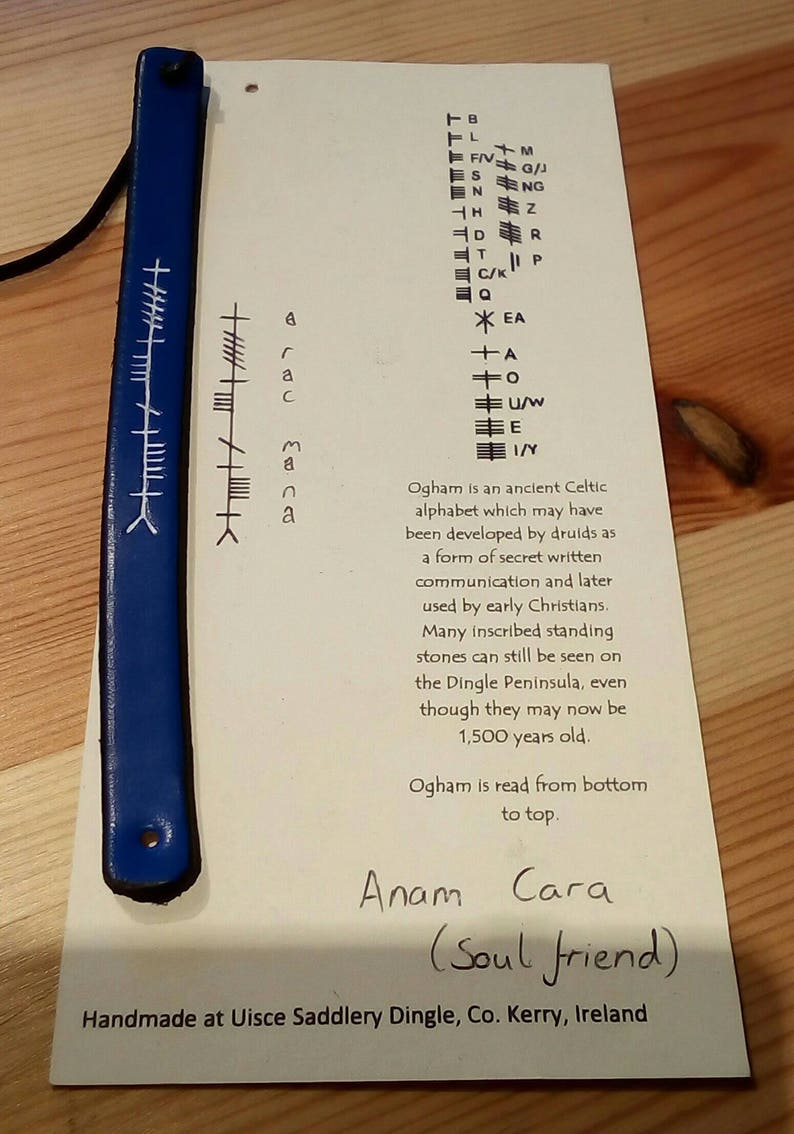 ᚛ᚐᚅᚐᚋᚉᚐᚏᚐ
᚛ᚐᚅᚐᚋᚉᚐᚏᚐ
a
r
a
c
m
a
n
a
ᚁ B
ᚂ L
ᚃ F/V
ᚄ S
ᚅ N
ᚆ H
ᚇ D
ᚈ T
ᚉ C/K
ᚊ Q
ᚋ M
ᚌ G/J
ᚍ NG
ᚎ Z
ᚏ R
ᚚ P
ᚕ EA
ᚐ A
ᚑ O
ᚒ U/W
ᚓ E
ᚔ I/Y
Ogham is an ancient Celtic
alphabet which may have
been developed by druids as
a form of secret written
communication and later
used by early Christians.
Many inscribed standing
stones can still be seen on
the Dingle Peninsula, even
though they may now be
1,500 years old.
Ogham is read from bottom
to top.
Anam Cara
(Soul friend)
Handmade at Uisce Saddlery Dingle, Co. Kerry, Ireland